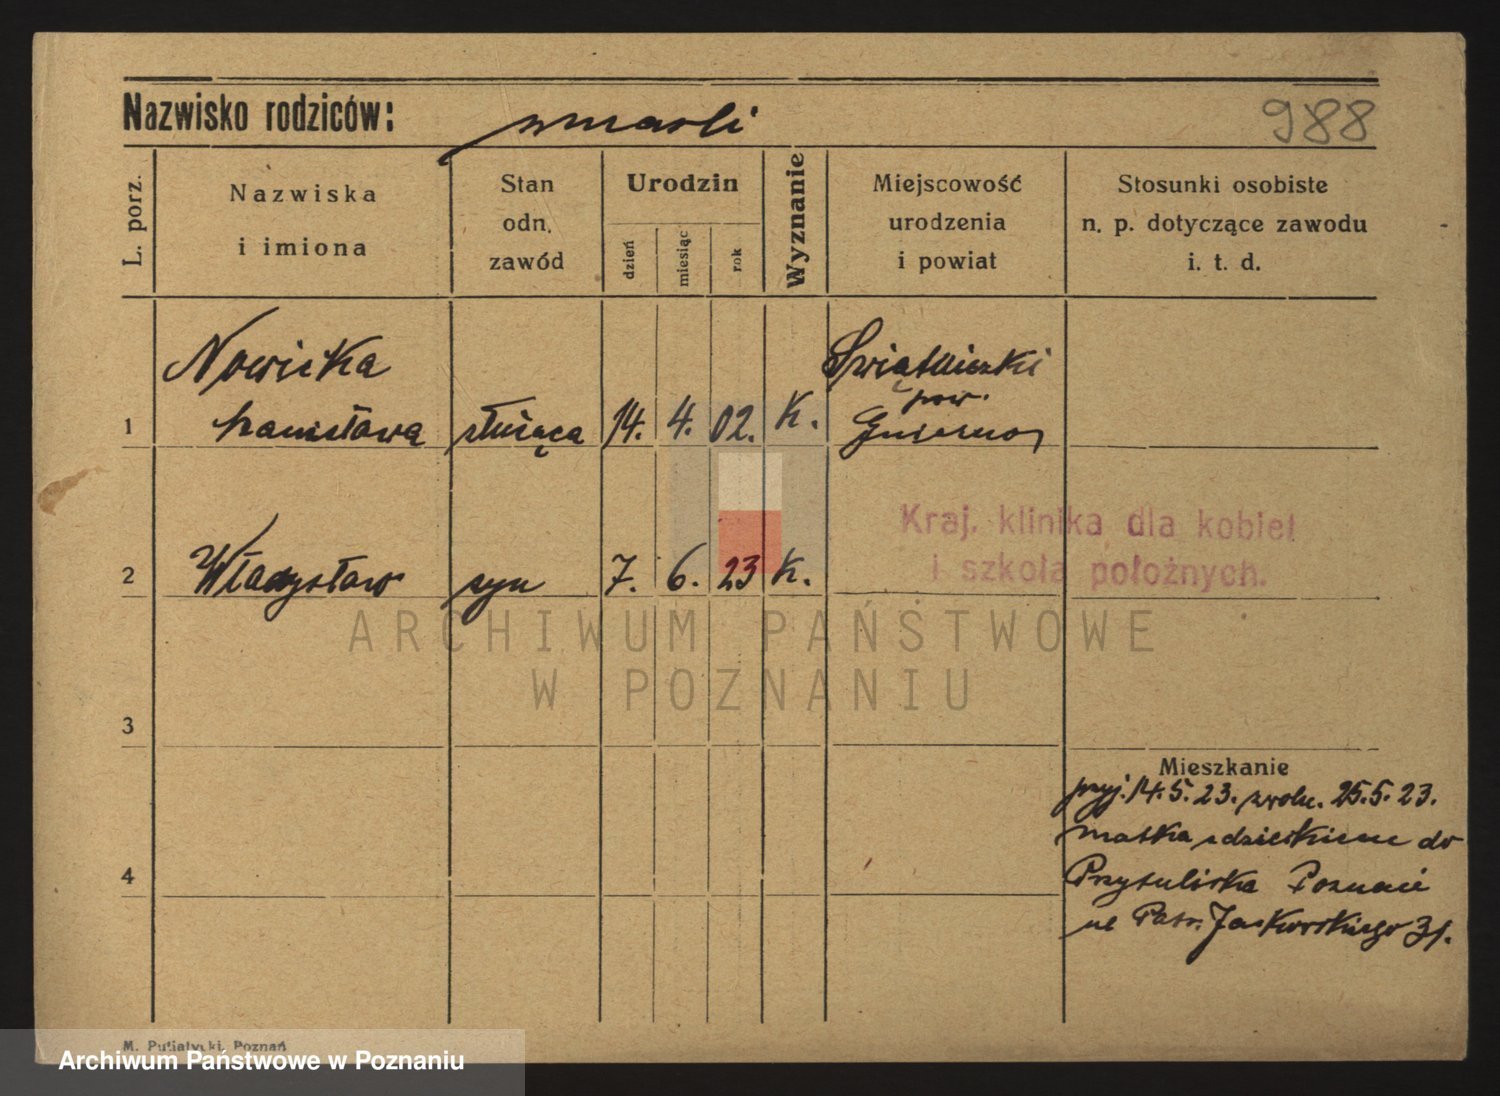 Nazwisko rodziców: zmarli 988
L. porz.
Nazwiska i imiona
Stan odn. zawód
Urodzin
dzień miesiąc rok
Wyznanie
Miejscowość urodzenia i powiat
Stosunki osobiste n. p. dotyczące zawodu i. t. d.
Nowicka Świątniczki
pow.
1 Stanisława służąca 14. 4. 02. K. Gniezno
Kraj. klinika dla kobiet
i szkoła położnych.
2 Władysław syn 7. 6. 23 K.
ARCHIWUM PAŃSTWOWE
W POZNANIU
3
Mieszkanie
przyj. 14.5.23. zwoln. 25.5.23.
4 matka z dzieckiem do
Przytuliska Poznań
ul Patr. Jackowskiego 31.
M. Putiatycki, Poznań
Archiwum Państwowe w Poznaniu